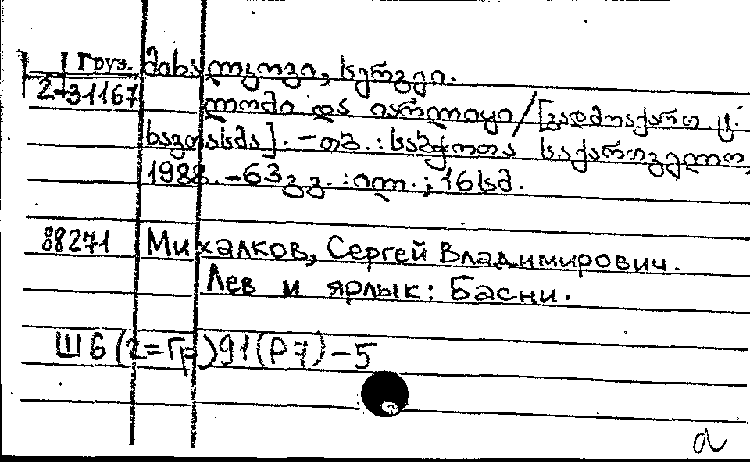 Груз. მიხალკოვი, სერგეი.
2-31167 ლომი და იარლიყი/[გადმოაქართ. ც.
ხავთასმა]. -თბ.: საბჭოთა საქართველო,
1988. -63გვ.: ილ.; 16სმ.
88271 Михалков, Сергей Владимирович.
Лев и ярлык: Басни.
Ш6(2=Гр)91(Р7)-5
а